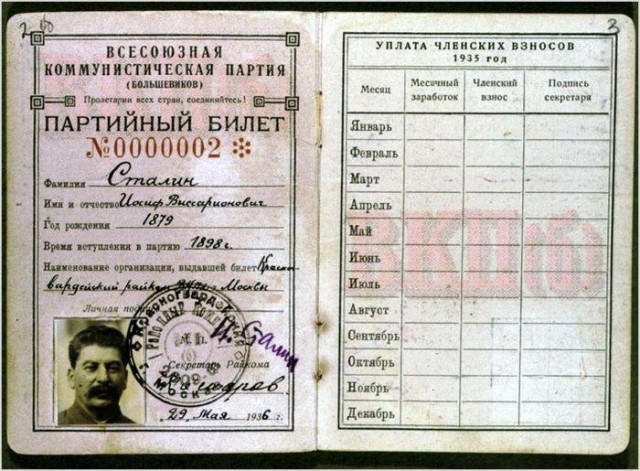 ВСЕСОЮЗНАЯ
КОММУНИСТИЧЕСКАЯ ПАРТИЯ
(БОЛЬШЕВИКОВ)
Пролетарии всех стран, соединяйтесь!
ПАРТИЙНЫЙ БИЛЕТ
№0000002
Фамилия Сталин
Имя и отчество Иосиф Виссарионович
Год рождения 1879
Время вступления в партию 1898 г.
Наименование организации, выдавшей билет Красно-
гвардейский райком Москвы
Личная
М. П.
И. Сталин
Секретарь Райкома
29 Мая 1936 г.
3
УПЛАТА ЧЛЕНСКИХ ВЗНОСОВ
1935 год
Месяц Месячный заработок Членский взнос Подпись секретаря
Январь
Февраль
Март
Апрель
Май
Июнь
Июль
Август
Сентябрь
Октябрь
Ноябрь
Декабрь
ВКП(б)